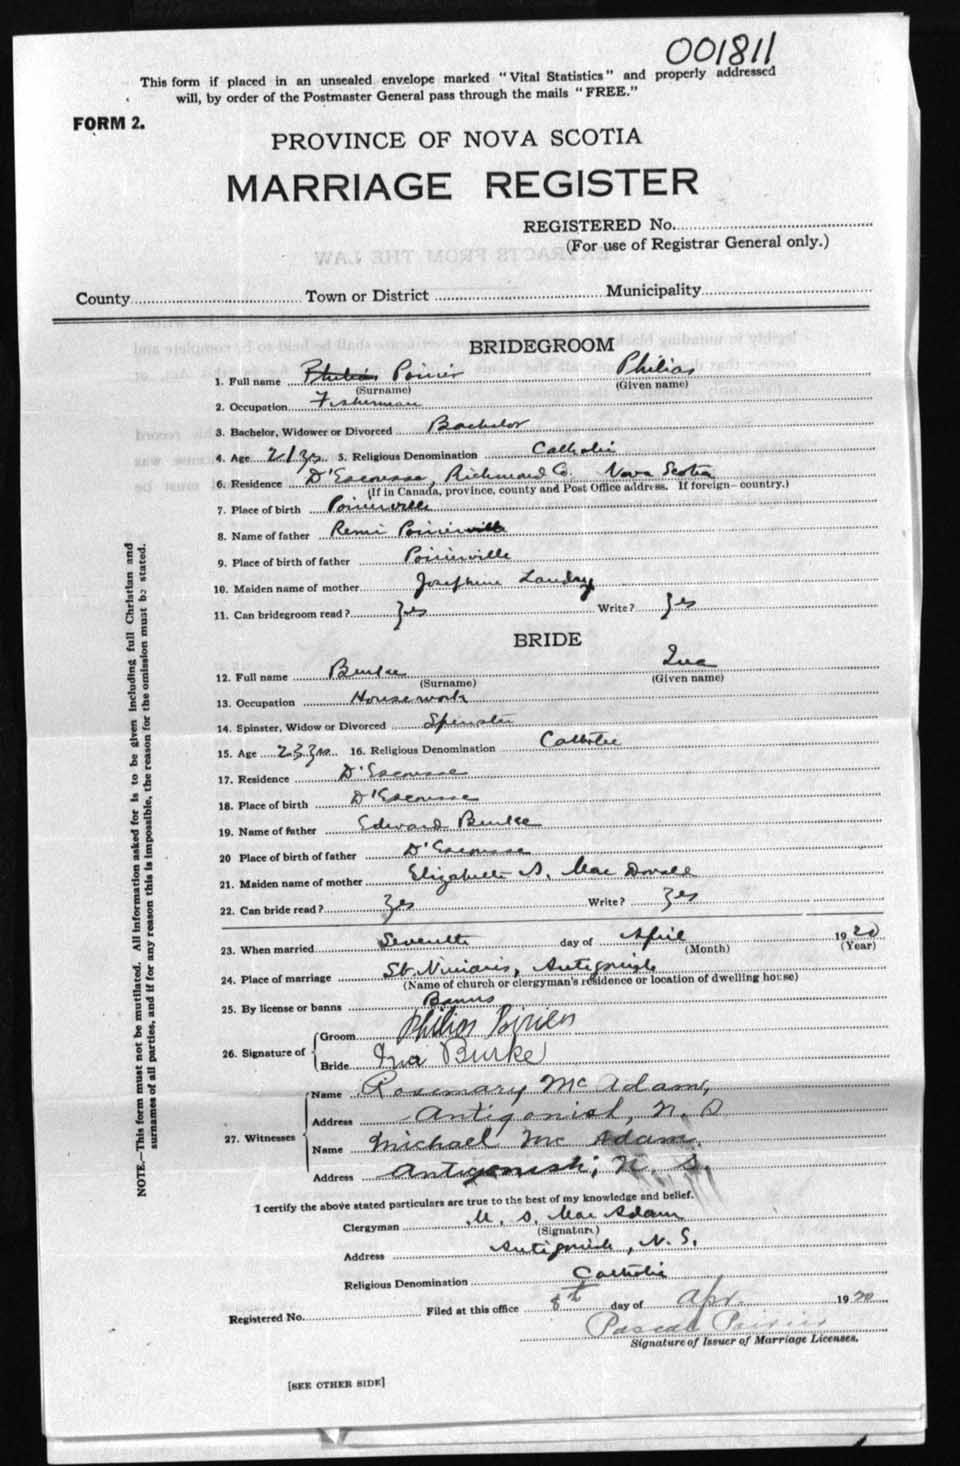 001811
This form if placed in an unsealed envelope marked "Vital Statistics" and properly addressed
will, by order of the Postmaster General pass through the mails "FREE."
FORM 2.
PROVINCE OF NOVA SCOTIA
MARRIAGE REGISTER
REGISTERED No.
(For use of Registrar General only.)
County Town or District Municipality
BRIDEGROOM
1. Full name Philias Poirier Philias
(Surname) (Given name)
2. Occupation Fisherman
3. Bachelor, Widower or Divorced Bachelor
4. Age 21 yrs. 5. Religious Denomination Catholic
6. Residence D'Escousse, Richmond Co. Nova Scotia
(If in Canada, province, county and Post Office address. If foreign—country.)
7. Place of birth Poirierville
8. Name of father Remi Poirierville
9. Place of birth of father Poirierville
10. Maiden name of mother Josephine Landry
11. Can bridegroom read? Yes Write? Yes
BRIDE
12. Full name Burke Ina
(Surname) (Given name)
13. Occupation Housework
14. Spinster, Widow or Divorced Spinster
15. Age 23 yrs. 16. Religious Denomination Catholic
17. Residence D'Escousse
18. Place of birth D'Escousse
19. Name of father Edward Burke
20 Place of birth of father D'Escousse
21. Maiden name of mother Elizabeth S. Mac Donald
22. Can bride read? Yes Write? Yes
23. When married Seventh day of April 1920
(Month) (Year)
24. Place of marriage St. Ninian's, Antigonish
(Name of church or clergyman's residence or location of dwelling house)
25. By license or banns Banns
26. Signature of Groom Philias Poirier
Bride Ina Burke
27. Witnesses Name Rosemary Mc Adam,
Address Antigonish, N. S
Name Michael Mc Adam.
Address Antigonish, N. S.
I certify the above stated particulars are true to the best of my knowledge and belief.
Clergyman M. S. Mac Adam
(Signature)
Address Antigonish, N. S.
Religious Denomination Catholic
Registered No. Filed at this office 8th day of Apr. 1920
Pascal Poirier
Signature of Issuer of Marriage Licenses.
[SEE OTHER SIDE]
NOTE.—This form must not be mutilated. All information asked for is to be given including full Christian and
surnames of all parties, and if for any reason this is impossible, the reason for the omission must be stated.